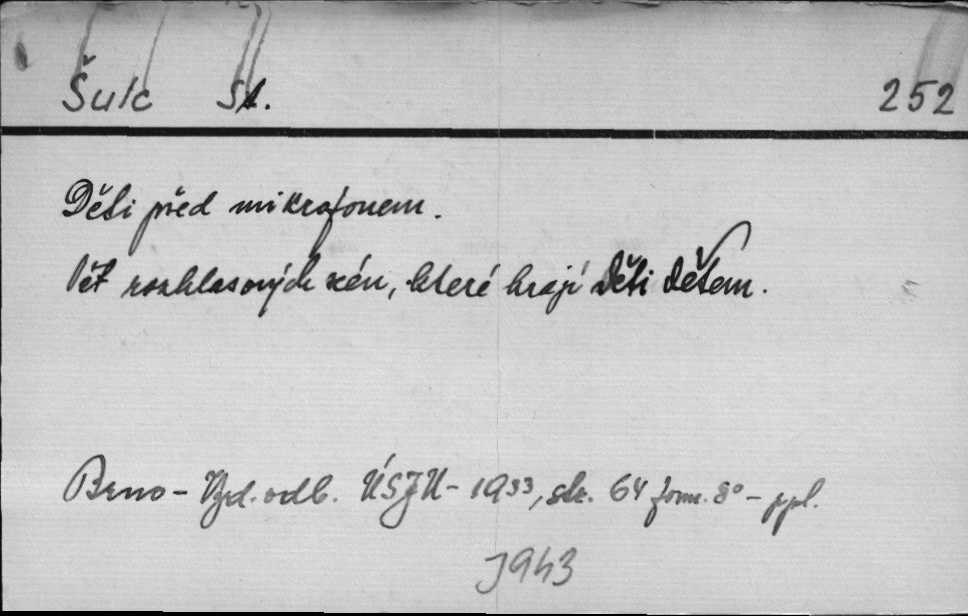 Šulc St. 252
Děti před mikrofonem.
Pět rozhlasových scén, které hrají děti dětem.
Brno - Vyd. odb. ÚSJU - 1933, str. 64 form. 8° - ppl.
J943